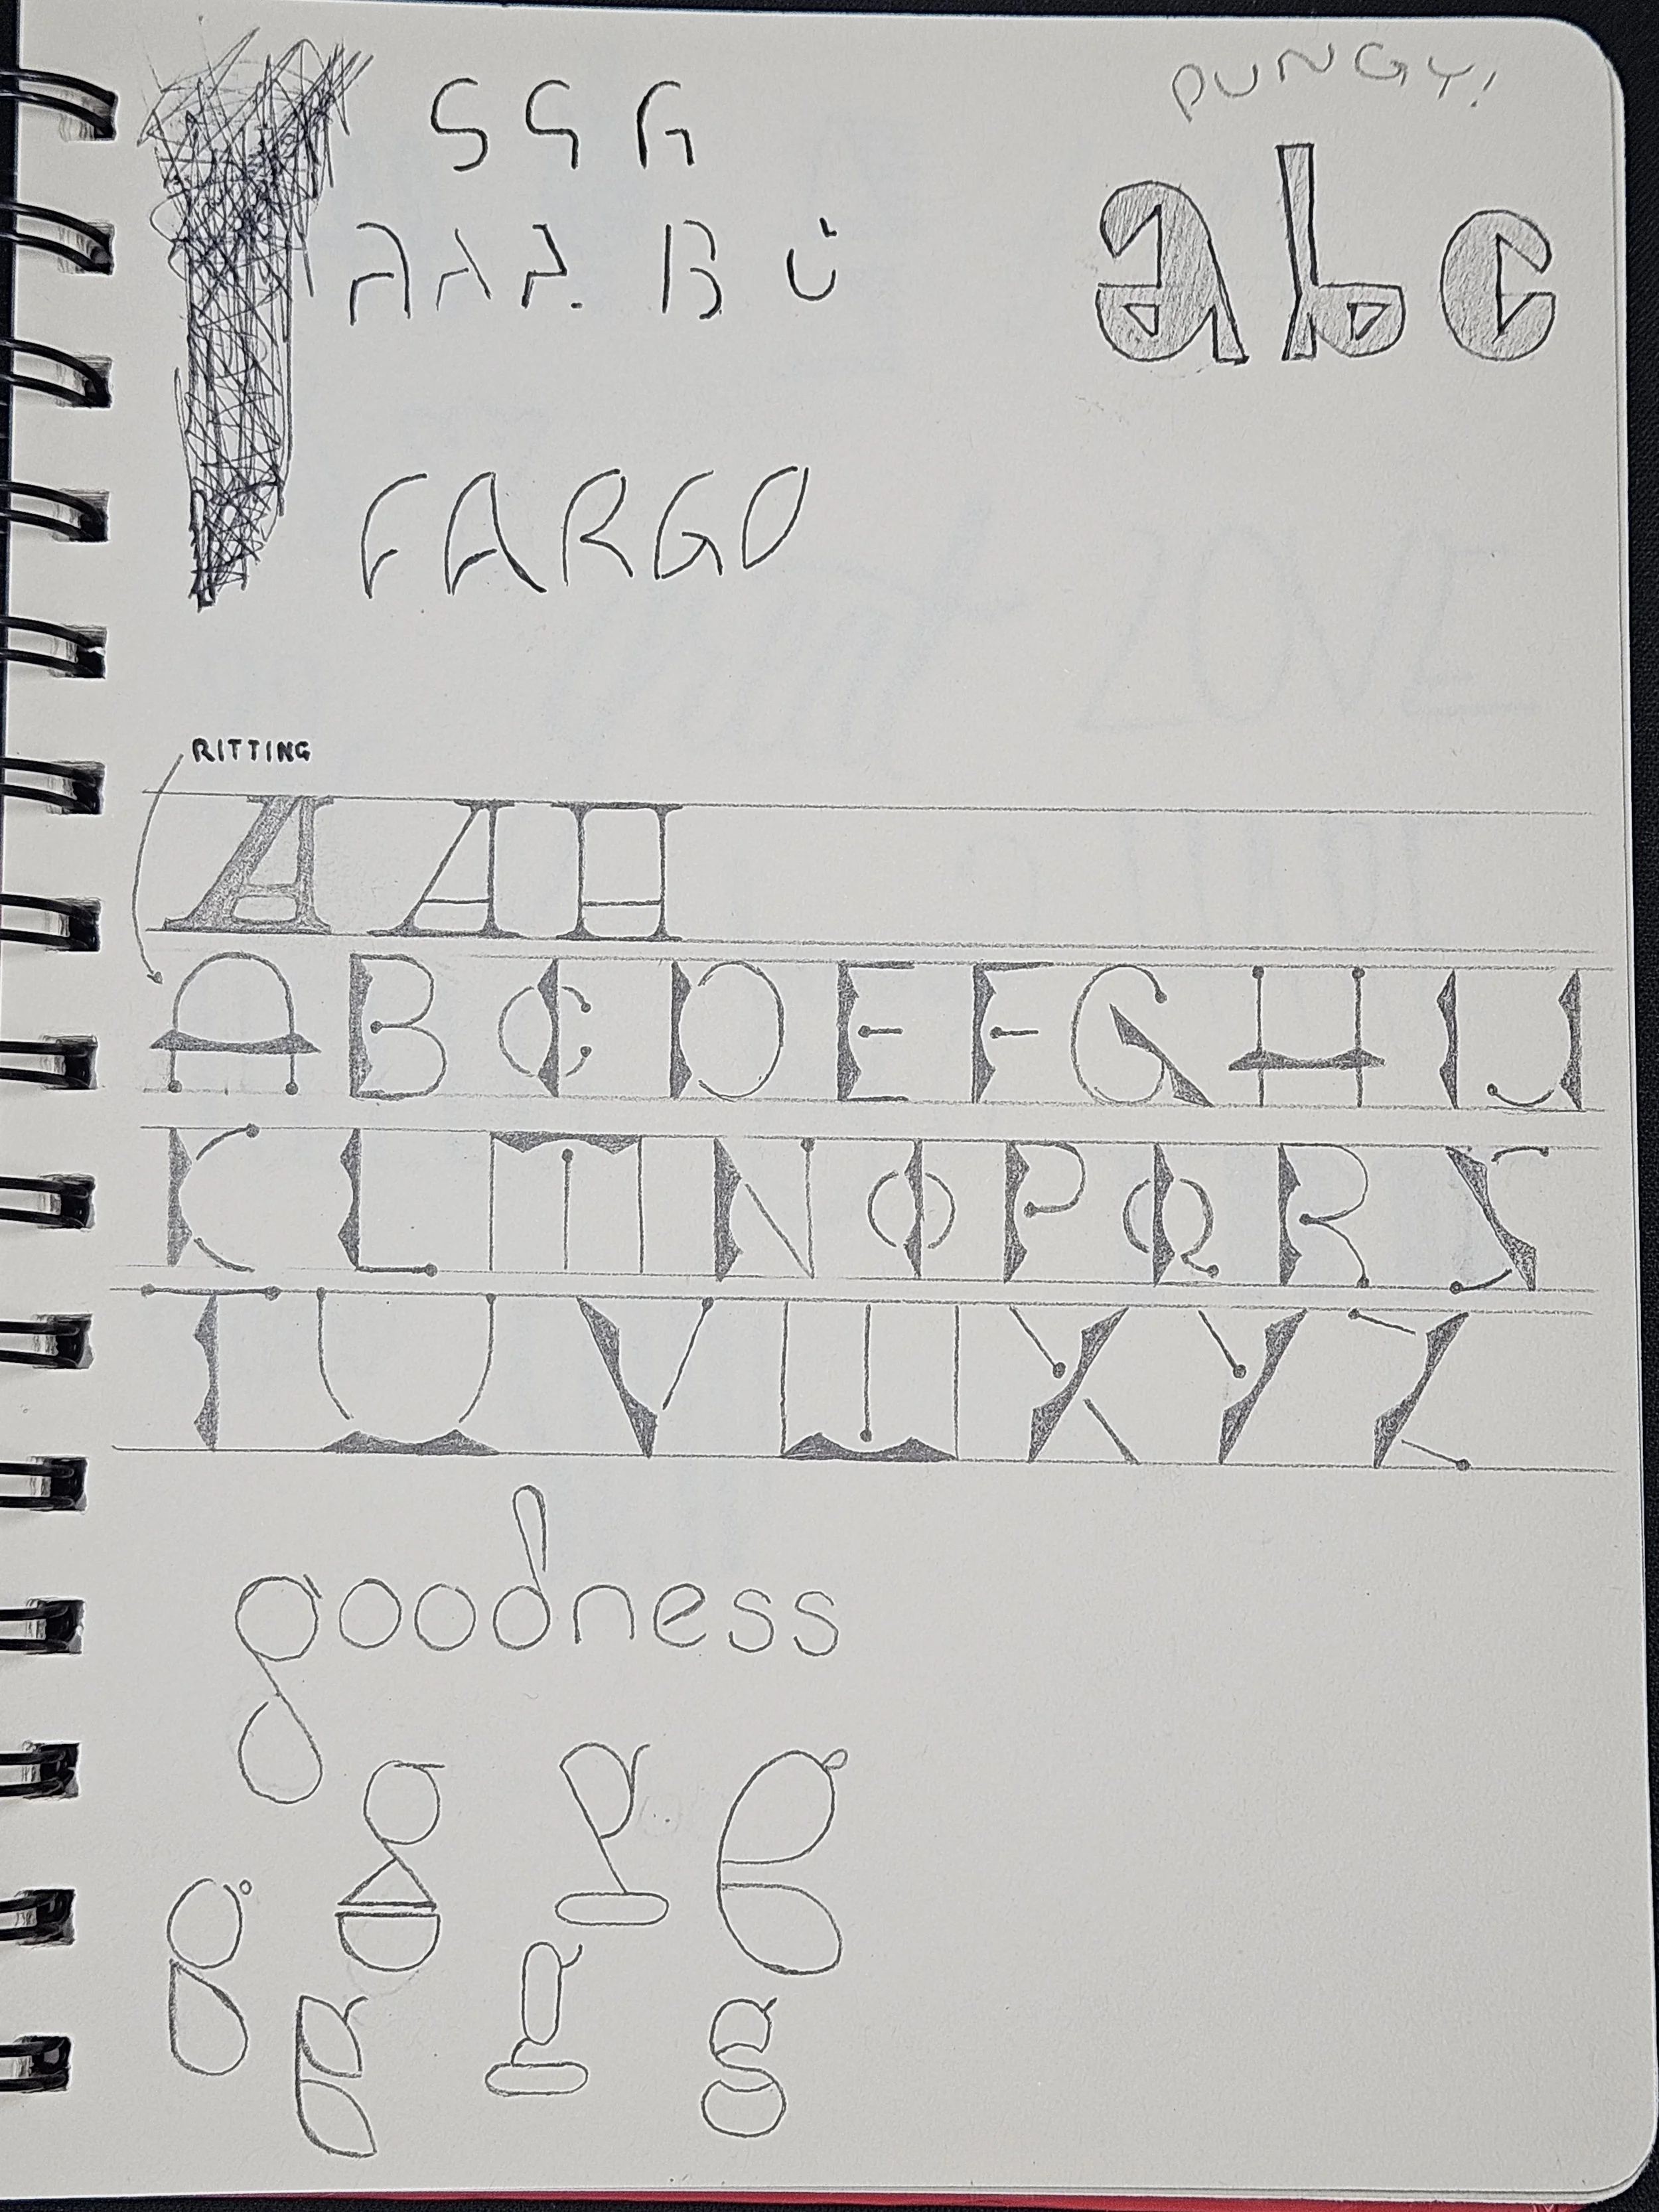 PUNGY!
S G G
abc
A A A. B Ü
FARGO
RITTING
A A A
A B C D E F G H I J
K L M N O P Q R S
T U V W X Y Z
goodness
g g g
g g g g